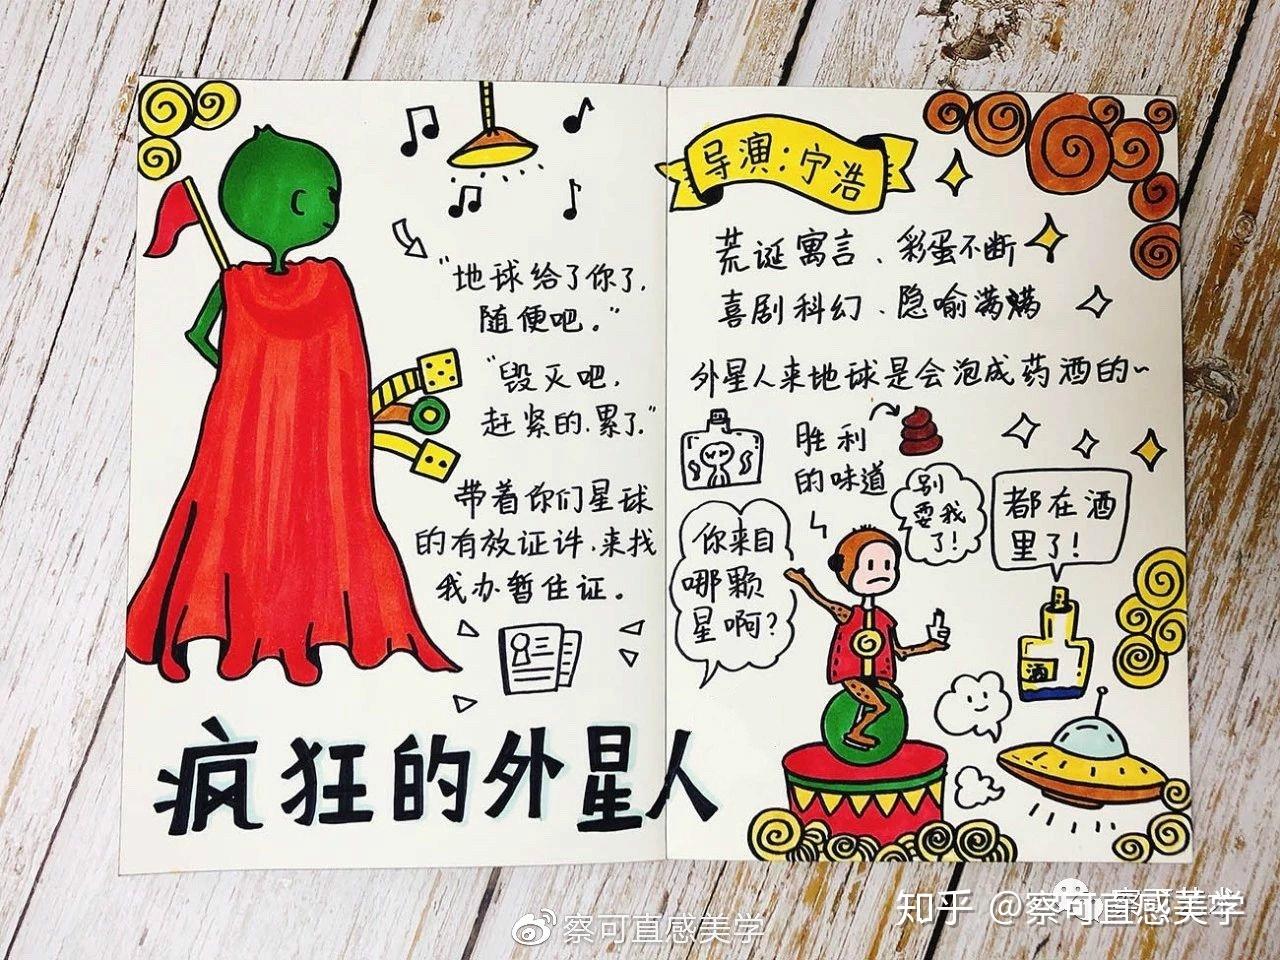 "地球给了你了,
随便吧。"
"毁灭吧,
赶紧的,累了"
带着你们星球
的有效证件,来找
我办暂住证。
疯狂的外星人
导演:宁浩
荒诞寓言、彩蛋不断
喜剧科幻、隐喻满满
外星人来地球是会泡成药酒的~
胜利
的味道
别
耍我
了!
都在酒
里了!
你来自
哪颗
星啊?
酒
察可直感美学
知乎 @察可直感美学